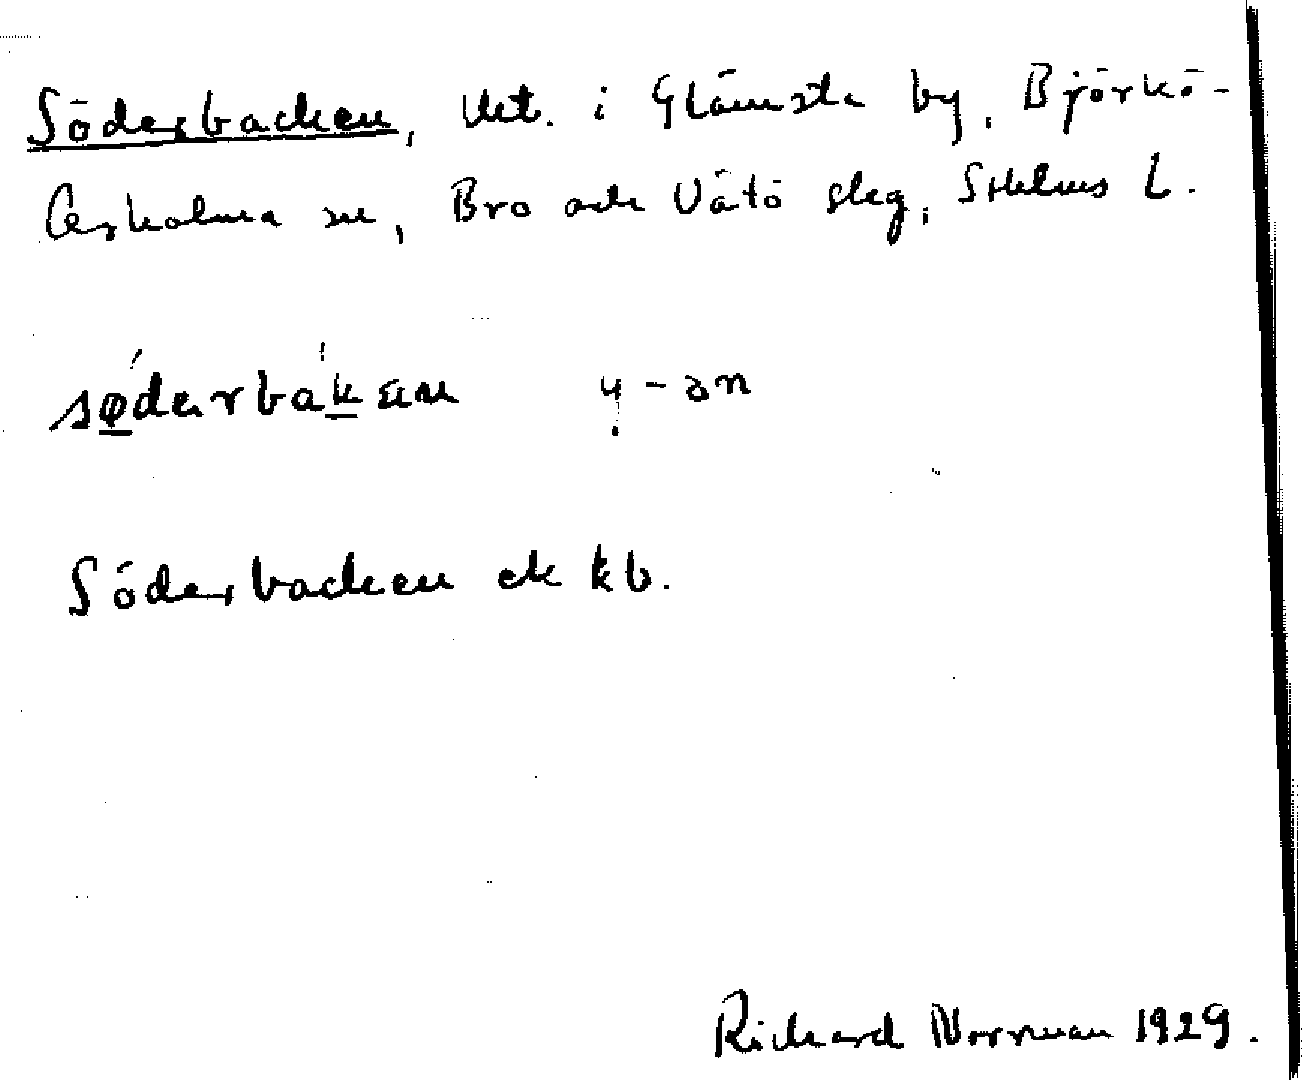 Söderbacken, lht. i Glämsta by, Björkö-
Arholma sn, Bro och Vätö slg, Sthlms L.
sødərbakan 4 -ən
Söderbacken ek kb.
Richard Norrman 1929.